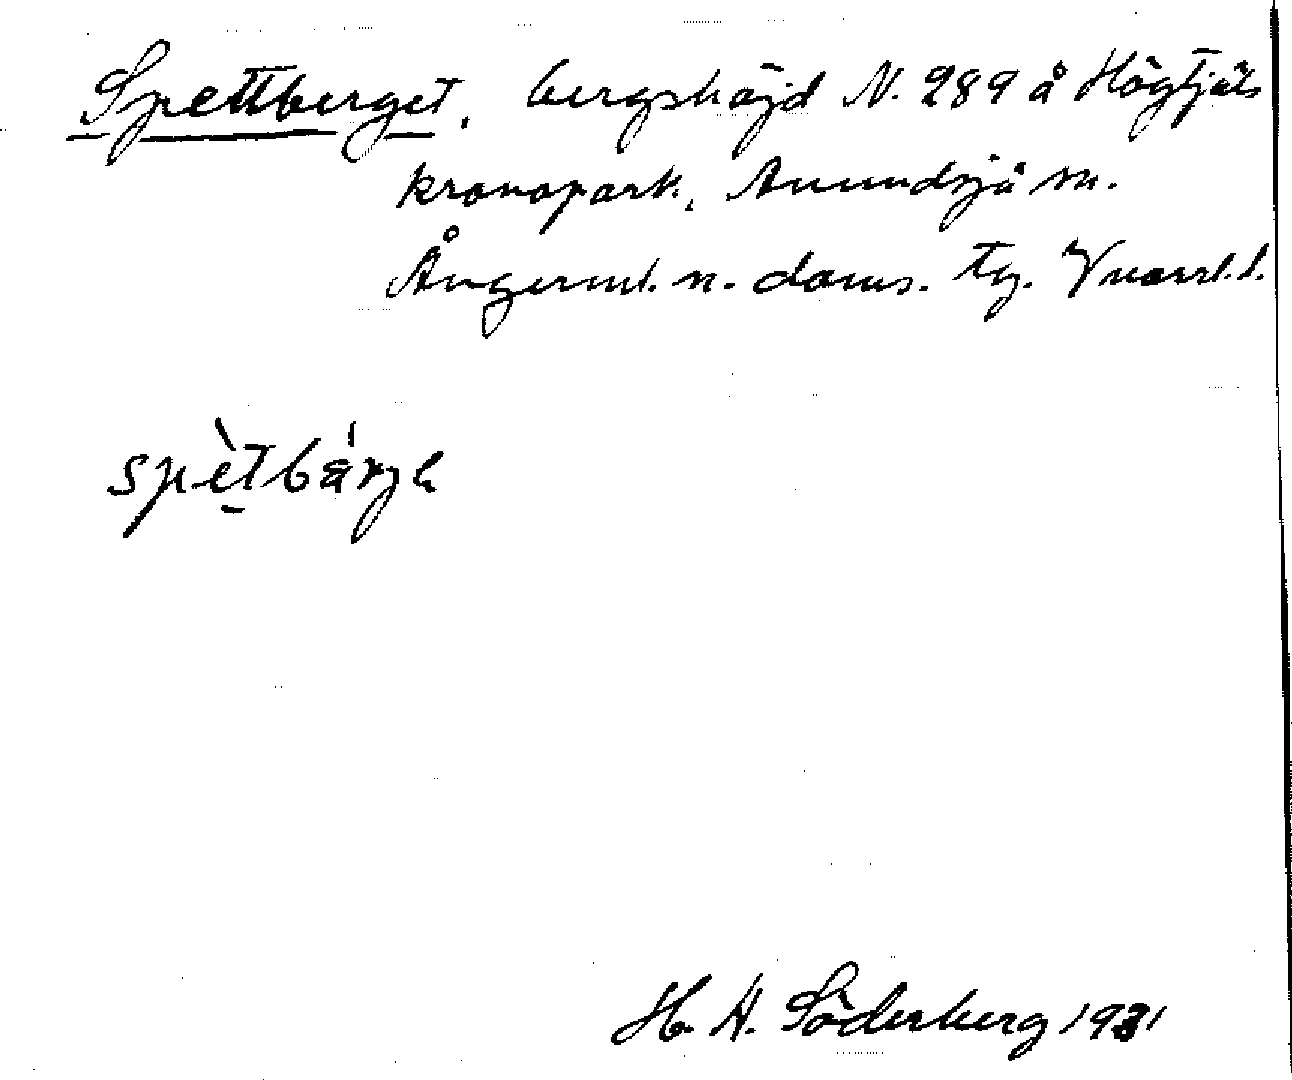 Spettberget, bergshöjd N. 289 å Högtjäls
kronopark, Anundsjö sn.
Ångerml. n. doms. tg. Vnorrl. l.
spètbä́rjɐ
H. H. Söderberg 1931